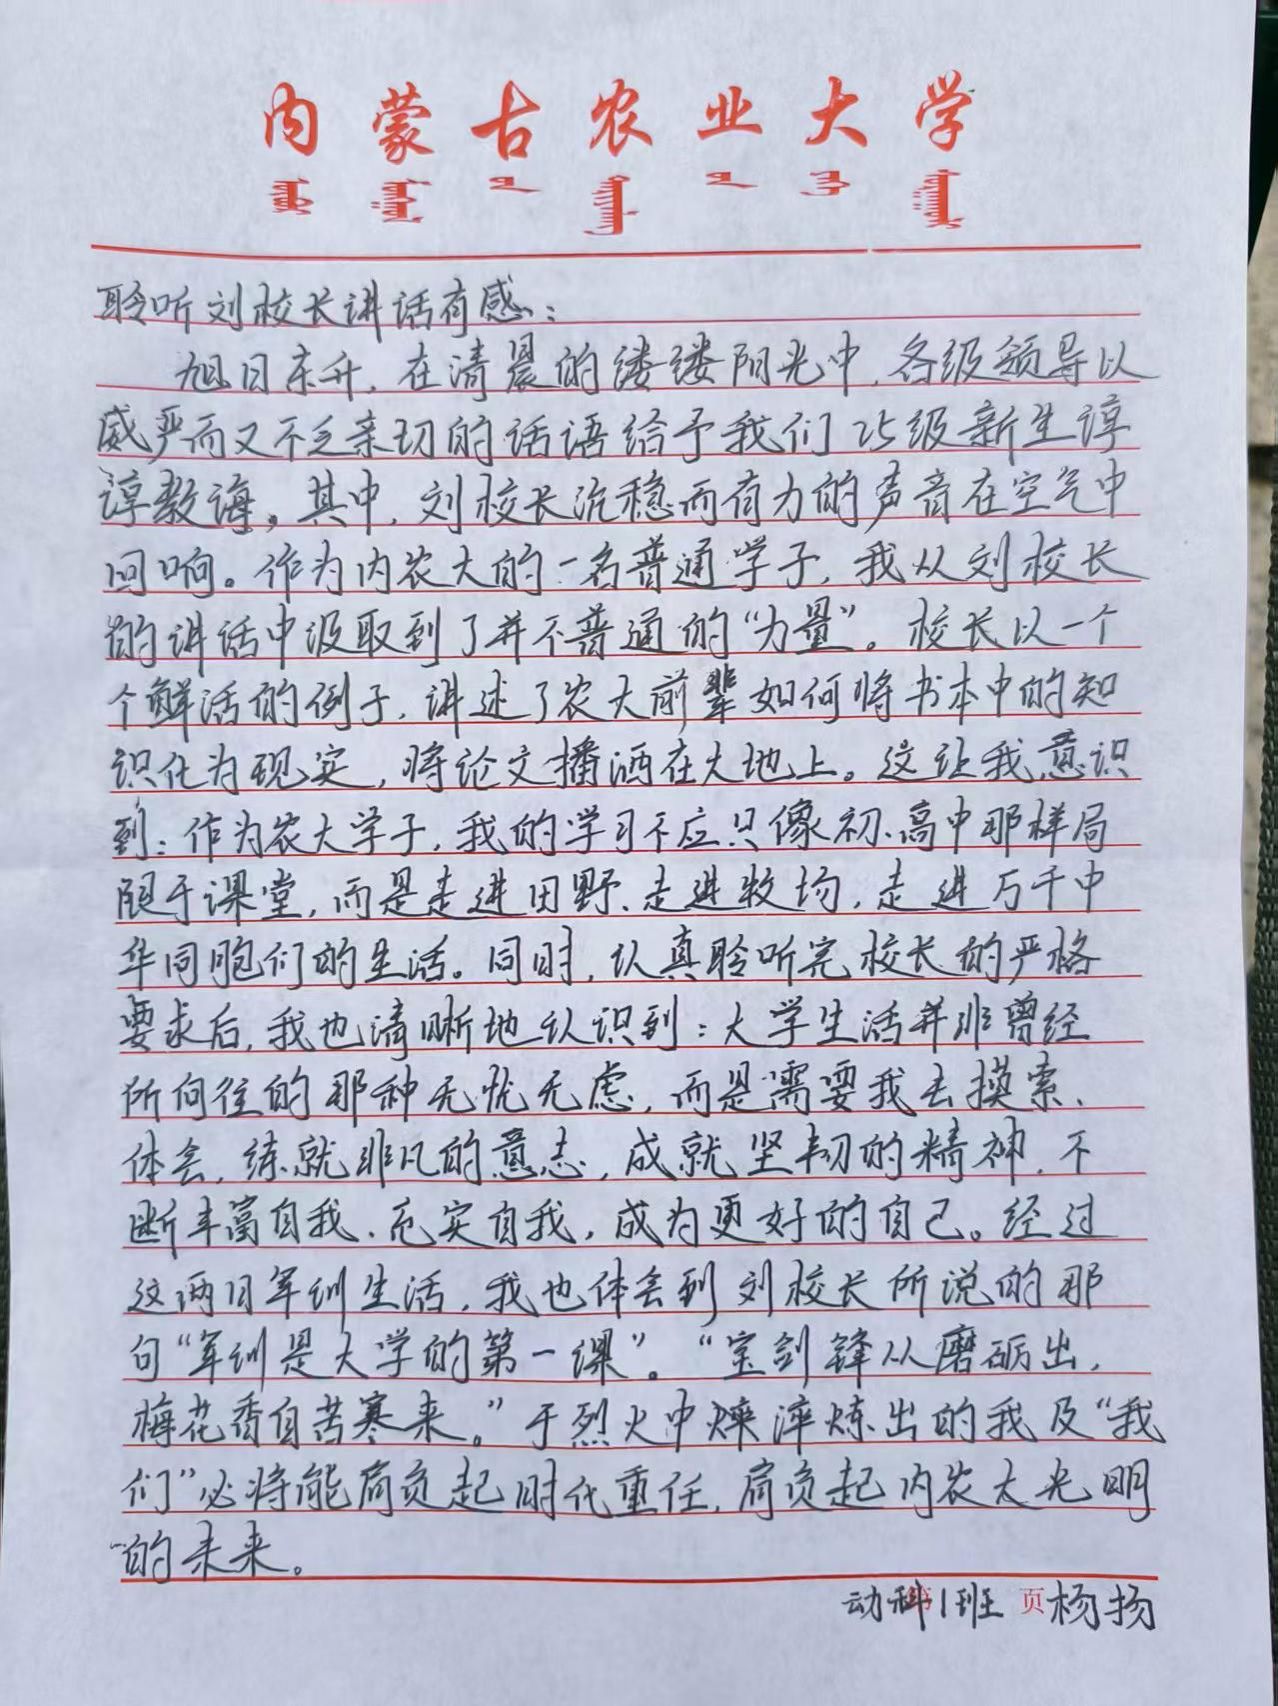 内蒙古农业大学
聆听刘校长讲话有感：
旭日东升，在清晨的缕缕阳光中，各级领导以
威严而又不乏亲切的话语给予我们25级新生谆
谆教诲。其中，刘校长沉稳而有力的声音在空气中
回响。作为内农大的一名普通学子，我从刘校长
的讲话中汲取到了并不普通的“力量”。校长以一个
个鲜活的例子，讲述了农大前辈如何将书本中的知
识化为现实，将论文播洒在大地上。这让我意识
到：作为农大学子，我的学习不应只像初、高中那样局
限于课堂，而是走进田野、走进牧场，走进万千中
华同胞们的生活。同时，认真聆听完校长的严格
要求后，我也清晰地认识到：大学生活并非曾经
所向往的那种无忧无虑，而是需要我去摸索、
体会，练就非凡的意志，成就坚韧的精神，不
断丰富自我、充实自我，成为更好的自己。经过
这两日军训生活，我也体会到刘校长所说的那
句“军训是大学的第一课”。“宝剑锋从磨砺出，
梅花香自苦寒来。”于烈火中淬炼出的我及“我
们”必将能肩负起时代重任，肩负起内农大光明
的未来。
动科1班 页杨扬